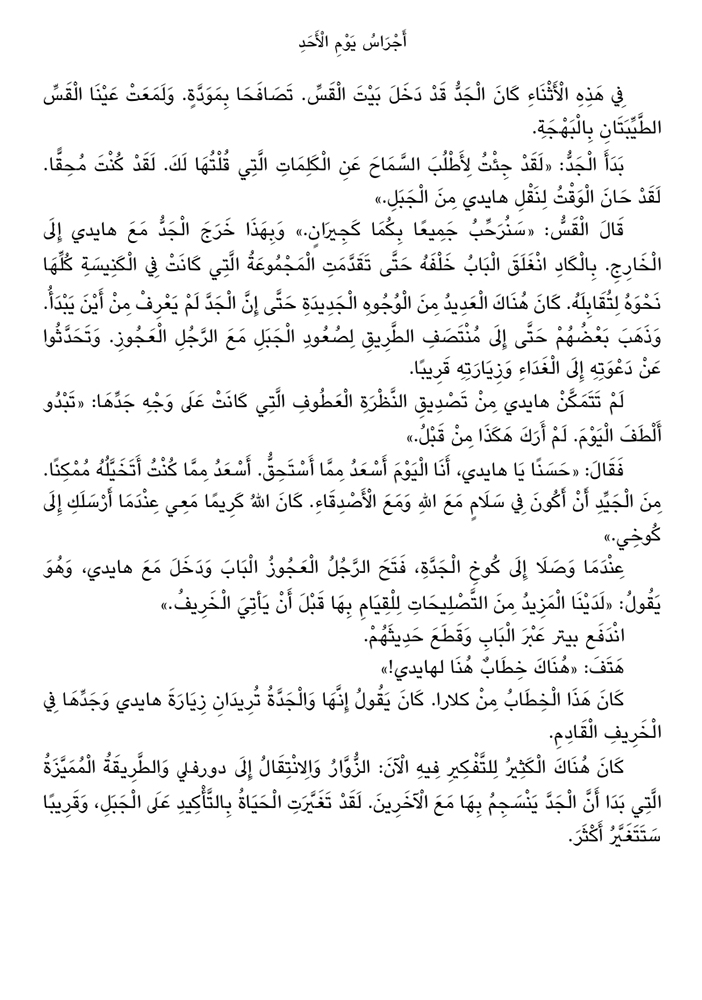 أَجْرَاسُ يَوْمِ الْأَحَدِ
فِي هَذِهِ الْأَثْنَاءِ كَانَ الْجَدُّ قَدْ دَخَلَ بَيْتَ الْقَسِّ. تَصَافَحَا بِمَوَدَّةٍ. وَلَمَعَتْ عَيْنَا الْقَسِّ
الطَّيِّبَتَانِ بِالْبَهْجَةِ.
بَدَأَ الْجَدُّ: «لَقَدْ جِئْتُ لِأَطْلُبَ السَّمَاحَ عَنِ الْكَلِمَاتِ الَّتِي قُلْتُهَا لَكَ. لَقَدْ كُنْتَ مُحِقًّا.
لَقَدْ حَانَ الْوَقْتُ لِنَقْلِ هايدي مِنَ الْجَبَلِ.»
قَالَ الْقَسُّ: «سَنُرَحِّبُ جَمِيعًا بِكُمَا كَجِيرَانٍ.» وَبِهَذَا خَرَجَ الْجَدُّ مَعَ هايدي إِلَى
الْخَارِجِ. بِالْكَادِ انْغَلَقَ الْبَابُ خَلْفَهُ حَتَّى تَقَدَّمَتِ الْمَجْمُوعَةُ الَّتِي كَانَتْ فِي الْكَنِيسَةِ كُلِّهَا
نَحْوَهُ لِتُقَابِلَهُ. كَانَ هُنَاكَ الْعَدِيدُ مِنَ الْوُجُوهِ الْجَدِيدَةِ حَتَّى إِنَّ الْجَدَّ لَمْ يَعْرِفْ مِنْ أَيْنَ يَبْدَأُ.
وَذَهَبَ بَعْضُهُمْ حَتَّى إِلَى مُنْتَصَفِ الطَّرِيقِ لِصُعُودِ الْجَبَلِ مَعَ الرَّجُلِ الْعَجُوزِ. وَتَحَدَّثُوا
عَنْ دَعْوَتِهِ إِلَى الْغَدَاءِ وَزِيَارَتِهِ قَرِيبًا.
لَمْ تَتَمَكَّنْ هايدي مِنْ تَصْدِيقِ النَّظْرَةِ الْعَطُوفِ الَّتِي كَانَتْ عَلَى وَجْهِ جَدِّهَا: «تَبْدُو
أَلْطَفَ الْيَوْمَ. لَمْ أَرَكَ هَكَذَا مِنْ قَبْلُ.»
فَقَالَ: «حَسَنًا يَا هايدي، أَنَا الْيَوْمَ أَسْعَدُ مِمَّا أَسْتَحِقُّ. أَسْعَدُ مِمَّا كُنْتُ أَتَخَيَّلُهُ مُمْكِنًا.
مِنَ الْجَيِّدِ أَنْ أَكُونَ فِي سَلَامٍ مَعَ اللهِ وَمَعَ الْأَصْدِقَاءِ. كَانَ اللهُ كَرِيمًا مَعِي عِنْدَمَا أَرْسَلَكِ إِلَى
كُوخِي.»
عِنْدَمَا وَصَلَا إِلَى كُوخِ الْجَدَّةِ، فَتَحَ الرَّجُلُ الْعَجُوزُ الْبَابَ وَدَخَلَ مَعَ هايدي، وَهُوَ
يَقُولُ: «لَدَيْنَا الْمَزِيدُ مِنَ التَّصْلِيحَاتِ لِلْقِيَامِ بِهَا قَبْلَ أَنْ يَأْتِيَ الْخَرِيفُ.»
انْدَفَع بيتر عَبْرَ الْبَابِ وَقَطَعَ حَدِيثَهُمْ.
هَتَفَ: «هُنَاكَ خِطَابٌ هُنَا لهايدي!»
كَانَ هَذَا الْخِطَابُ مِنْ كلارا. كَانَ يَقُولُ إِنَّهَا وَالْجَدَّةُ تُرِيدَانِ زِيَارَةَ هايدي وَجَدِّهَا فِي
الْخَرِيفِ الْقَادِمِ.
كَانَ هُنَاكَ الْكَثِيرُ لِلتَّفْكِيرِ فِيهِ الْآنَ: الزُّوَّارُ وَالِانْتِقَالُ إِلَى دورفلي وَالطَّرِيقَةُ الْمُمَيَّزَةُ
الَّتِي بَدَا أَنَّ الْجَدَّ يَنْسَجِمُ بِهَا مَعَ الْآخَرِينَ. لَقَدْ تَغَيَّرَتِ الْحَيَاةُ بِالتَّأْكِيدِ عَلَى الْجَبَلِ، وَقَرِيبًا
سَتَتَغَيَّرُ أَكْثَرَ.